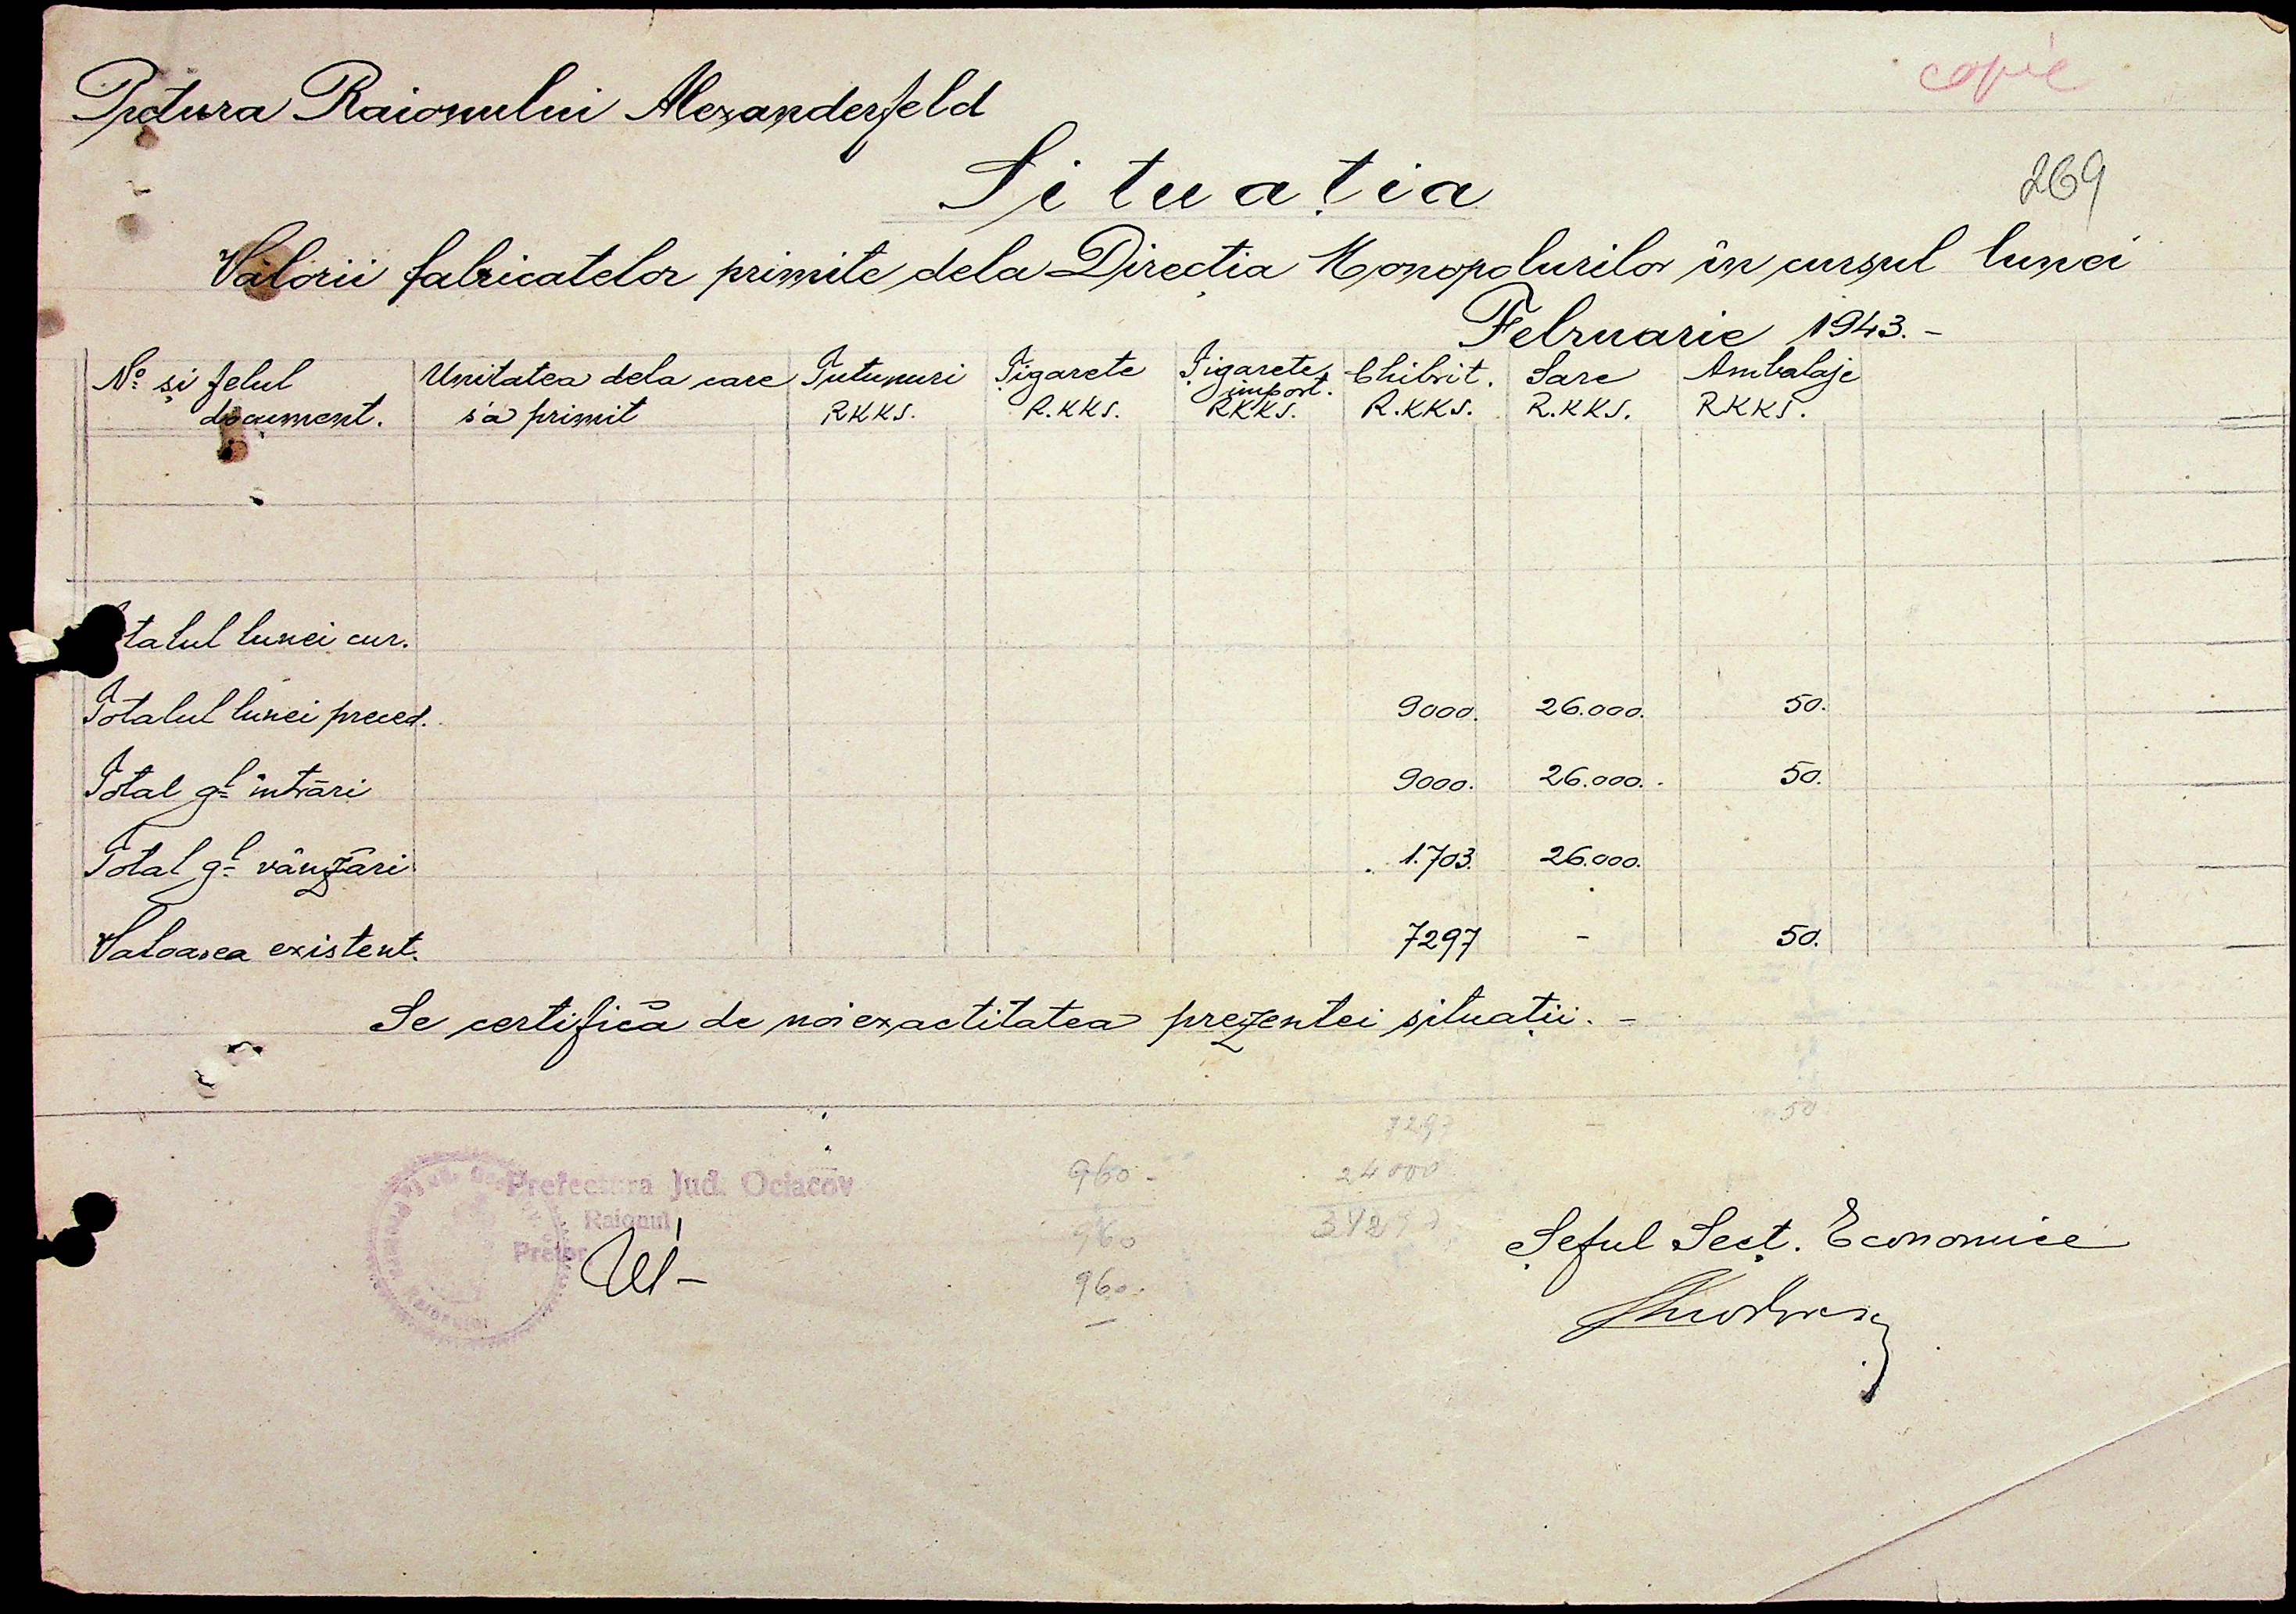 copie
Pretura Raionului Alexanderfeld
269
Situația
Valorii fabricatelor primite dela Direcția Monopolurilor în cursul lunei
Februarie 1943.-
No și felul document. Unitatea dela care s'a primit Tutunuri RKKS. Țigarete R.KKS. Țigarete import. RKKS. Chibrit. R.KKS. Sare R.KKS. Ambalaje RKKS.
talul lunei cur.
Totalul lunei preced. 9000. 26.000. 50.
Total gl intrări 9000. 26.000. 50.
Total gl vânzări 1.703. 26.000.
Valoarea existent. 7297 - 50.
Se certifică de noi exactitatea prezentei situații.-
7297 - 50
960- 24000
960
960.
Prefectura Jud. Ociacov
Raionul
Pretor
Șeful Secț. Economice